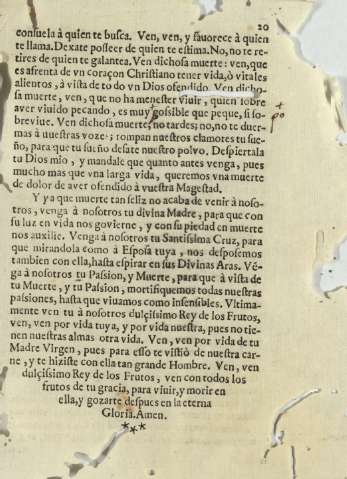 20
consuela à quien te busca. Ven, ven, y fauorece à quien
te llama. Dexate posseer de quien te estima. No, no te re-
tires de quien te galantea. Ven dichosa muerte: ven, que
es afrenta de vn coraçon Christiano tener vida, ò vitales
alientos, à vista de todo vn Dios ofendido. Ven dicho-
sa muerte, ven, que no ha menester viuir, quien sobre
aver viuido pecando, es muy possible que peque, si so-
breviue. Ven dichosa muerte, no tardes; no, no te duer-
mas à nuestras vozes; rompan nuestros clamores tu sue-
ño, para que tu sueño desate nuestro polvo. Despiertala
tu Dios mio, y mandale que quanto antes venga, pues
mucho mas que vna larga vida, queremos vna muerte
de dolor de aver ofendido à vuestra Magestad.
Y ya que muerte tan feliz no acaba de venir à noso-
tros, venga à nosotros tu divina Madre, para que con
su luz en vida nos govierne, y con su piedad en muerte
nos auxilie. Venga à nosotros tu Santissima Cruz, para
que mirandola como à Esposa tuya, nos desposemos
tambien con ella, hasta espirar en sus Divinas Aras. Vé-
ga à nosotros tu Passion, y Muerte, para que à vista de
tu Muerte, y tu Passion, mortifiquemos todas nuestras
passiones, hasta que viuamos como insensibles. Vltima-
mente ven tu à nosotros dulçissimo Rey de los Frutos,
ven, ven por vida tuya, y por vida nuestra, pues no tie-
nen nuestras almas otra vida. Ven, ven por vida de tu
Madre Virgen, pues para esso te vistiò de nuestra car-
ne, y te hiziste con ella tan grande Hombre. Ven, ven
dulçissimo Rey de los Frutos, ven con todos los
frutos de tu gracia, para viuir, y morir en
ella, y gozarte despues en la eterna
Gloria. Amen.
***